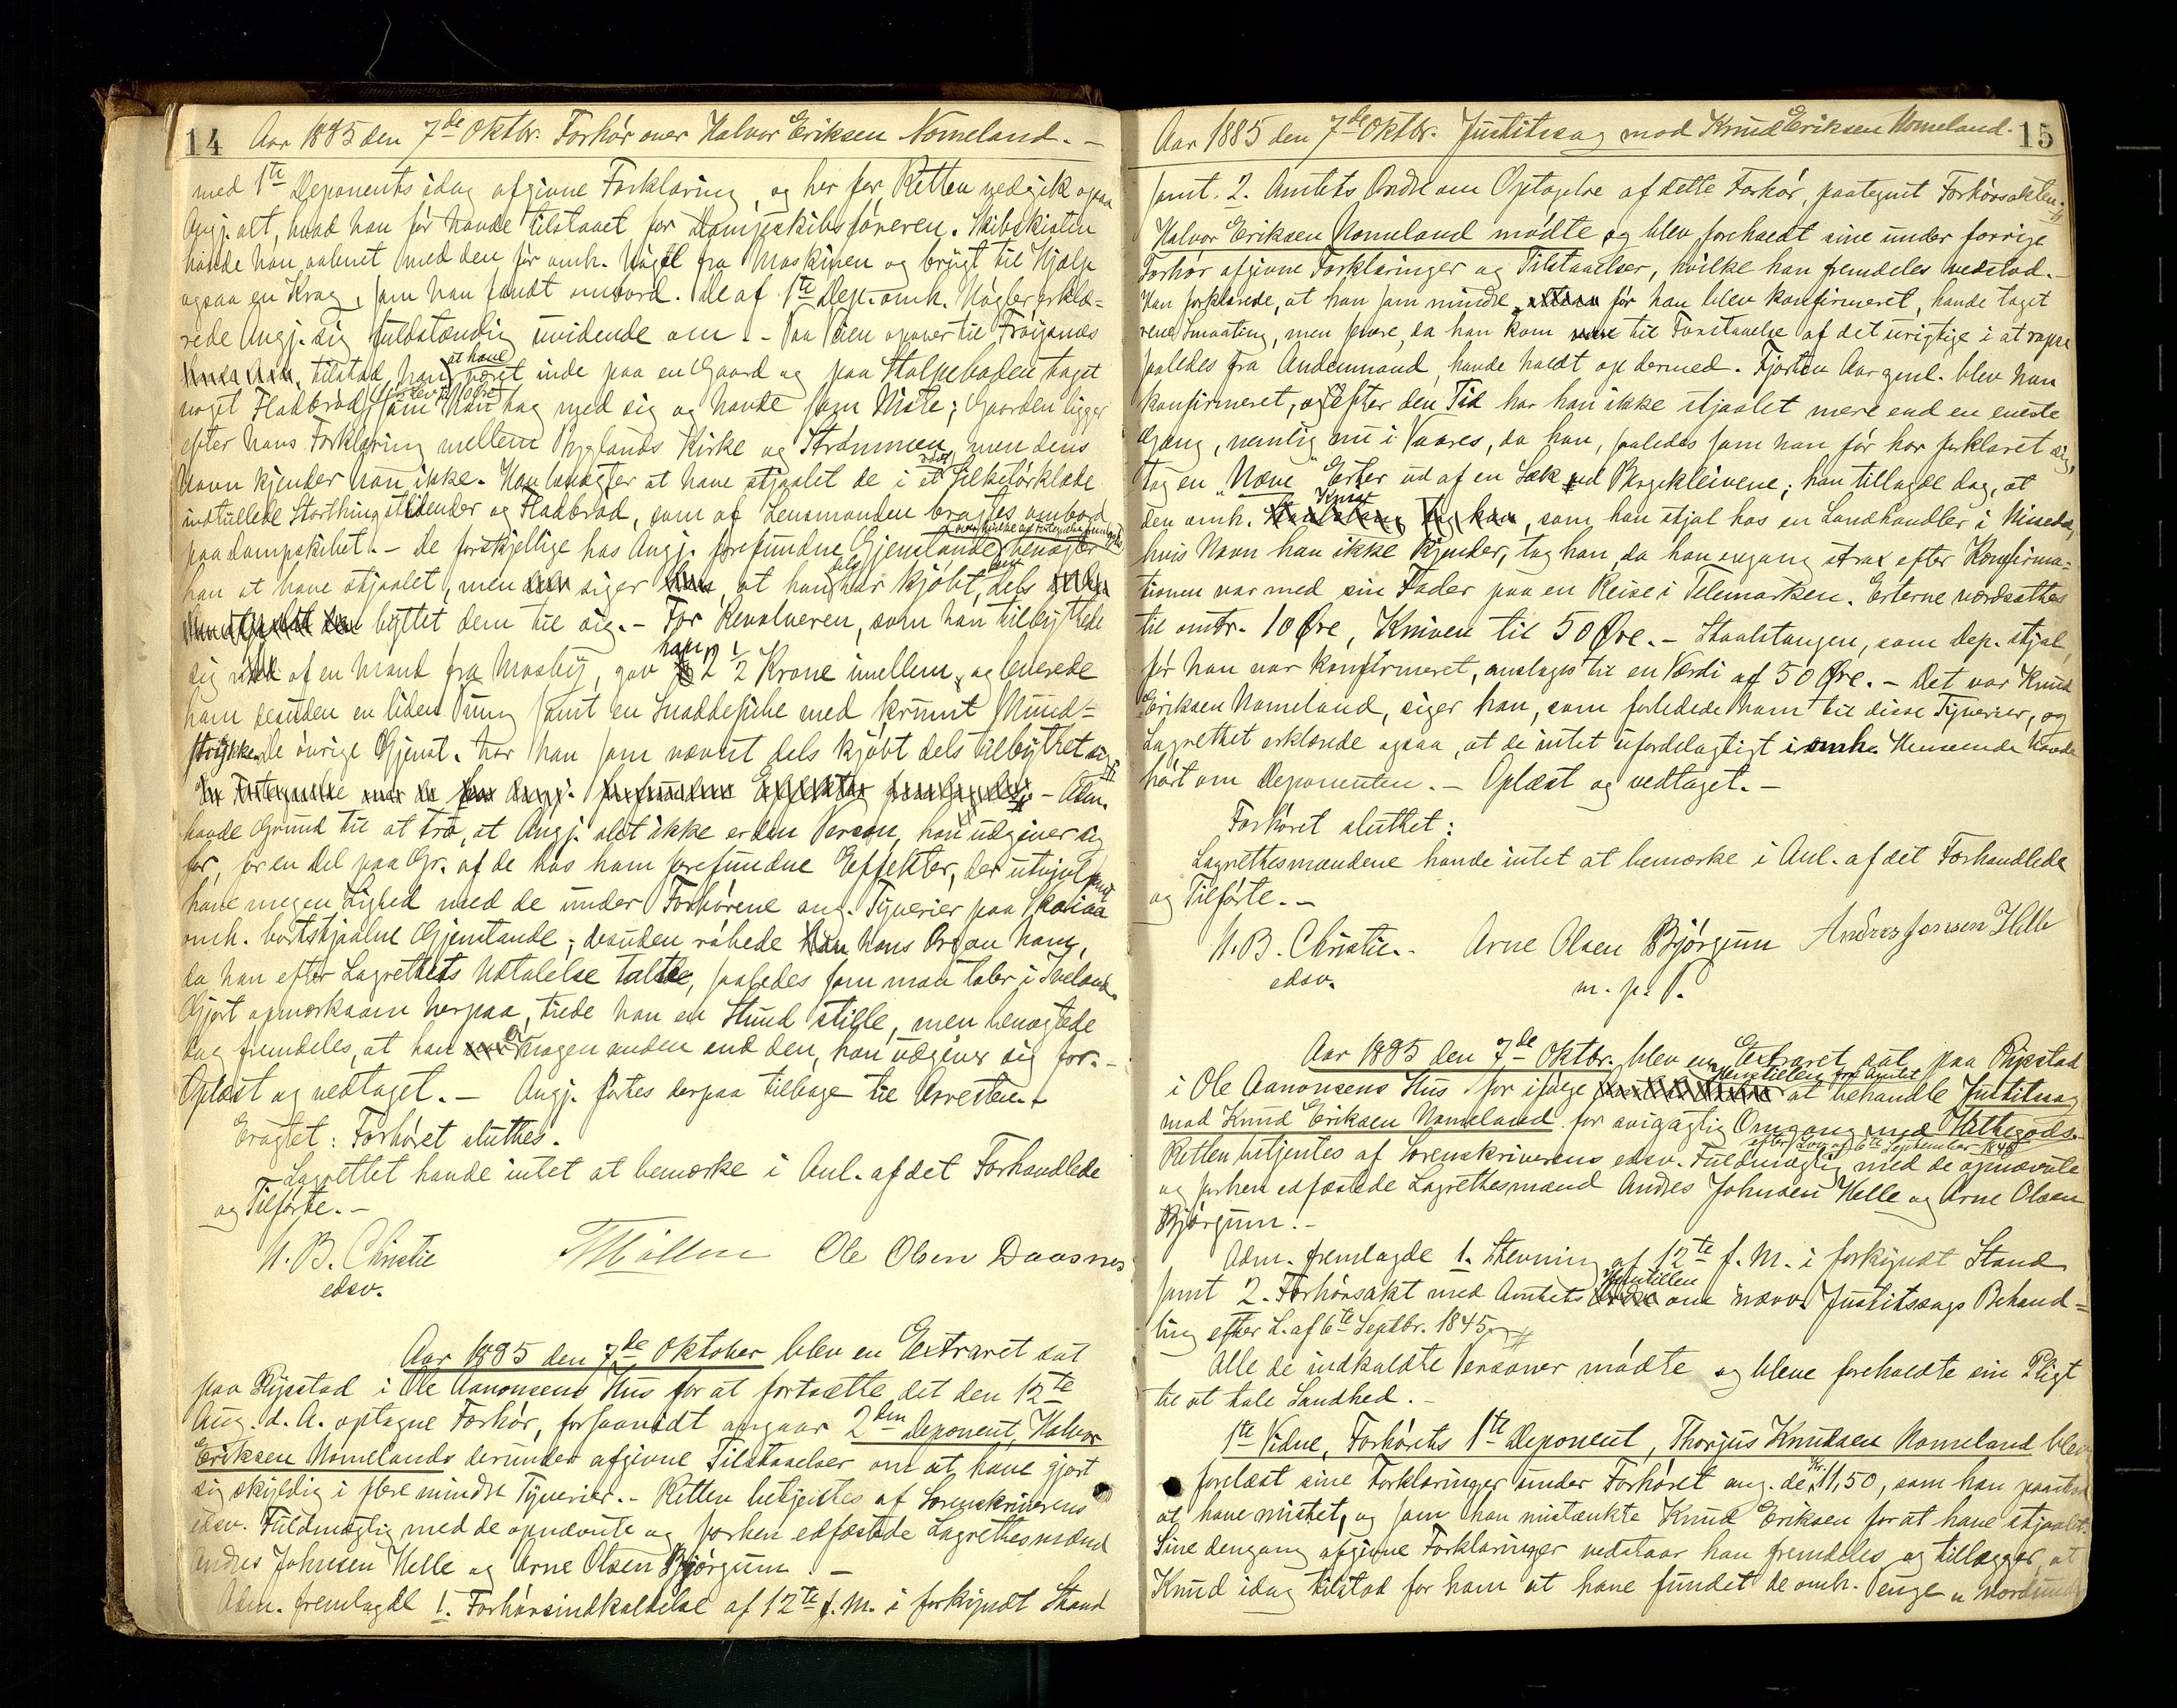 14 Aar 1885 den 7de Oktbr. Forhør over Halvor Eriksen Nomeland. -
med 1ste Deponents idag afgivne Forklaring, og her for Retten vedgik ogsaa
Angj. alt, hvad han før havde tilstaaet for Dampskibsføreren. Skibskisten
havde han aabnet med den før omh. Nøgel fra Maskinen og brugt til Hjælp
ogsaa en Krog, som han fandt ombord. De af 1ste Dep. omh. Nøgler erklæ-
rede Angj. sig fuldstændig uvidende om. - Paa Veien opover til Frøisnæs
tilstod han at have været inde paa en Gaard og paa Stolpeboden taget
noget Fladbrød, som han tog med sig og havde som Niste; Gaarden ligger
efter hans Forklaring mellem Byglands Kirke og Strømmen, men dens
Navn kjender han ikke. Han benægter at have stjaalet de i et rødt Silketørklæde
indtullede Storthingstidender og Fladbrød, som af Lensmanden bragtes ombord
paa dampskibet. - De forskjellige hos Angj. forefundne Gjenstande benægter
han at have stjaalet, men siger, at han dels har kjøbt dem, dels
byttet dem til sig. - For Revolveren, som han tilbyttede
sig af en Mand fra Mosby, gav han 2 1/2 Krone imellem, og leverede
ham desuden en liden Pung samt en Snaddepibe med krumt Mund-
stykke. De øvrige Gjenst. har han som nævnt dels kjøbt dels tilbyttet sig
- Adm.
havde Grund til at tro, at Angj. slet ikke er den Person, han udgiver sig
for, for en Del paa Gr. af de hos ham forefundne Effekter, der utvivlsomt
have megen Lighed med de under Forhørene ang. Tyverier paa
omh. bortstjaalne Gjenstande; desuden røbede hans Organ ham,
da han efter Lagrettets Udtalelse talte, saaledes som man taler i Iveland.
Gjort opmærksom herpaa, tiede han en Stund stille, men benægtede
dog fremdeles, at han er nogen anden end den, han udgiver sig for. -
Oplæst og vedtaget. - Angj. førtes derpaa tilbage til Arresten. -
Eragtet: Forhøret sluttes.
Lagrettet havde intet at bemærke i Anl. af det Forhandlede
og Tilførte. -
N. B. Christie Ole Olsen Daasnes
edsv.
Aar 1885 den 7de Oktober blev en Extraret sat
paa Rysstad i Ole Aanonsens Hus for at fortsætte det den 12te
Aug. d. A. optagne Forhør, forsaavidt angaar 2den Deponent, Halvor
Eriksen Nomelands derunder afgivne Tilstaaelser om at have gjort
sig skyldig i flere mindre Tyverier. - Retten betjentes af Sorenskriverens
edsv. Fuldmægtig med de opnævnte og forhen edfæstede Lagrettesmænd
Andres Johnsen Helle og Arne Olsen Bjørgum. -
Adm. fremlagde 1. Forhørsindkaldelse af 12te f. M. i forkyndt Stand
Aar 1885 den 7de Oktbr. Justitssag mod Knud Eriksen Nomeland. 15
samt 2. Amtets Ordre om Optagelse af dette Forhør, paategnet Forhørsakten.
Halvor Eriksen Nomeland mødte og blev foreholdt sine under forrige
Forhør afgivne Forklaringer og Tilstaaelser, hvilke han fremdeles vedstod. -
Han forklarede, at han som mindre, før han blev konfirmeret, havde taget
rene Smaating, men senere, da han kom til Forstaaelse af det urigtige i at rapse
saaledes fra Andenmand, havde holdt op dermed. Fjorten Aar gml. blev han
konfirmeret, og efter den Tid har han ikke stjaalet mere end en eneste
Gang, nemlig nu i Vaares, da han, saaledes som han før har forklaret sig,
tog en "Næve" Erter ud af en Sæk ved Bygekleivene; han tillagde dog, at
den omh. Kniv, som han stjal hos en Landhandler i Nissedal,
hvis Navn han ikke kjender, tog han, da han engang strax efter Konfirma-
tionen var med sin Fader paa en Reise i Telemarken. Erterne værdsattes
til omtr. 10 Øre, Kniven til 50 Øre. - Staalstangen, som Dep. stjal,
før han var konfirmeret, ansloges til en Værdi af 50 Øre. - Det var Knud
Eriksen Nomeland, siger han, som forledede ham til disse Tyverier, og
Lagrettet erklærede ogsaa, at de intet ufordelagtigt i omh. Henseende havde
hørt om Deponenten. - Oplæst og vedtaget. -
Forhøret sluttet:
Lagrettesmændene havde intet at bemærke i Anl. af det Forhandlede
og Tilførte. -
N. B. Christie. - Arne Olsen Bjørgum Andres Jonsen Helle
edsv. m. p. P.
Aar 1885 den 7de Oktbr. blev en Extraret sat paa Rysstad
i Ole Aanonsens Hus for ifølge Henstillen fra Amtet at behandle Justitssag
mod Knud Eriksen Nomeland for svigagtig Omgang med Hittegods
efter Lov af 6te September 1845
Retten betjentes af Sorenskriverens edsv. Fuldmægtig med de opnævnte
og forhen edfæstede Lagrettesmænd Andres Johnsen Helle og Arne Olsen
Bjørgum. -
Adm. fremlagde 1. Stevning af 12te f. M. i forkyndt Stand
samt 2. Forhørsakt med Amtets Henstillen om nævn. Justitssags Behand-
ling efter L. af 6te Septbr. 1845.
Alle de indkaldte Personer mødte og bleve foreholdte sin Pligt
til at tale Sandhed. -
1ste Vidne, Forhørets 1ste Deponent, Thorjus Knudsen Nomeland blev
forelæst sine Forklaringer under Forhøret ang. de Kr. 11,50, som han paastod
at have mistet, og som han mistænkte Knud Eriksen for at have stjaalet.
Sine dengang afgivne Forklaringer vedstaar han fremdeles og tillægger, at
Knud idag tilstod for ham at have fundet de omh. Penge